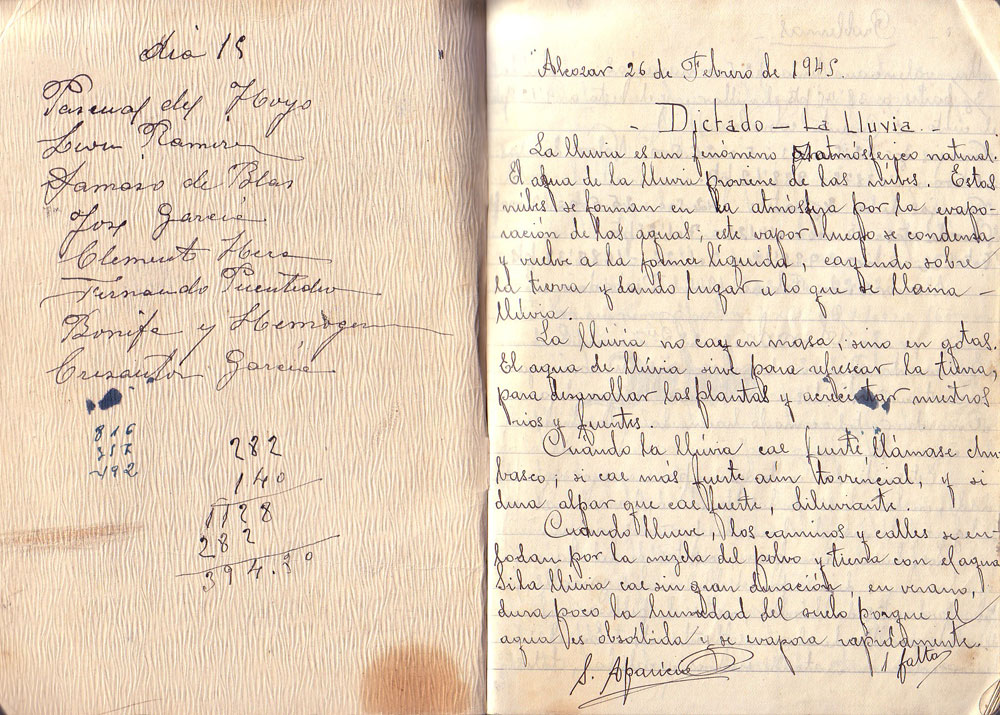 día 15
Pascual del Hoyo
León Ramirez
Damaso de Blas
Jose García
Clemente Hera
Fernando Puentedura
Bonifa y Hemogen
Crisanto García
816
757
492
282
140
1128
282
394.80
Alcozar 26 de Febrero de 1945.
- Dictado - La Lluvia. -
La lluvia es un fenómeno atmósferico natural.
El agua de la lluvia proviene de las núbes. Estas
núbes se forman en la atmósfera por la evapo-
ración de las aguas; este vapor luego se condensa
y vuelve a la forma líquida, cayendo sobre
la tierra y dando lugar a lo que se llama -
llúvia.
La llúvia no cay en masa, sino en gotas.
El agua de llúvia sirve para refrescar la tierra,
para desarrollar las plantas y acrecentar nuestros
rios y fuentes.
Cuando la llúvia cae fuerte llámase chu-
basco; si cae más fuerte aún torrencial, y si
dura alpar que cae fuerte, diluviante.
Cuando llueve, los caminos y calles se en-
lodan por la mezcla del polvo y tierra con el agua
Si la llúvia cae sin gran duración, en verano,
dura poco la humedad del suelo porque el
agua es obsorbida y se evapora rapidamente.
S. Aparicio
1 falta